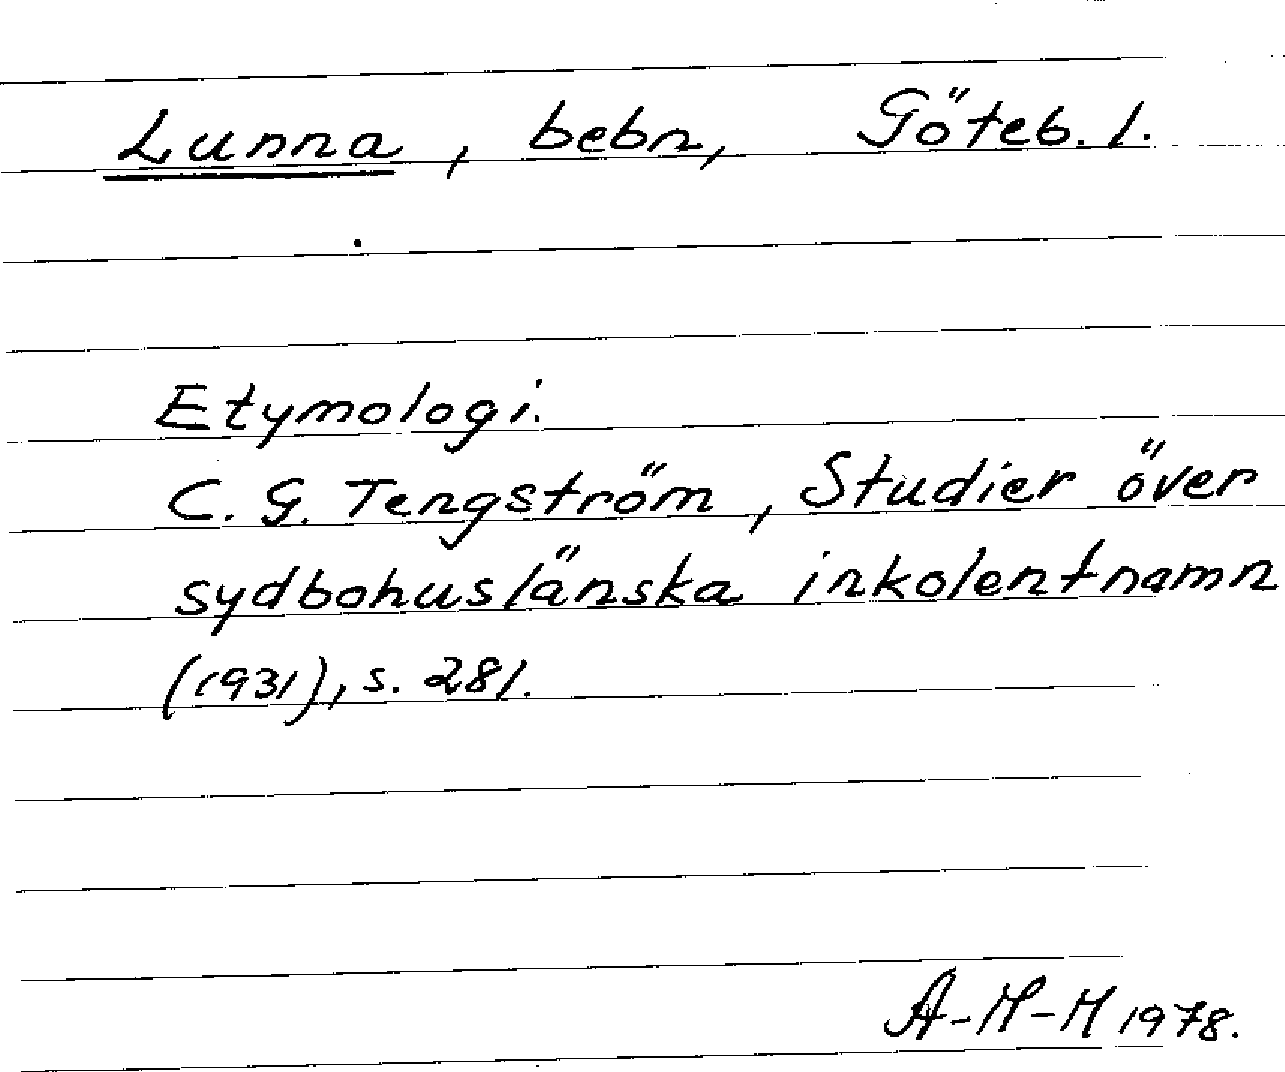 Lunna, bebn, Göteb. l.
Etymologi.
C. G. Tengström, Studier över
sydbohuslänska inkolentnamn
(1931), s. 281.
A-M-H 1978.